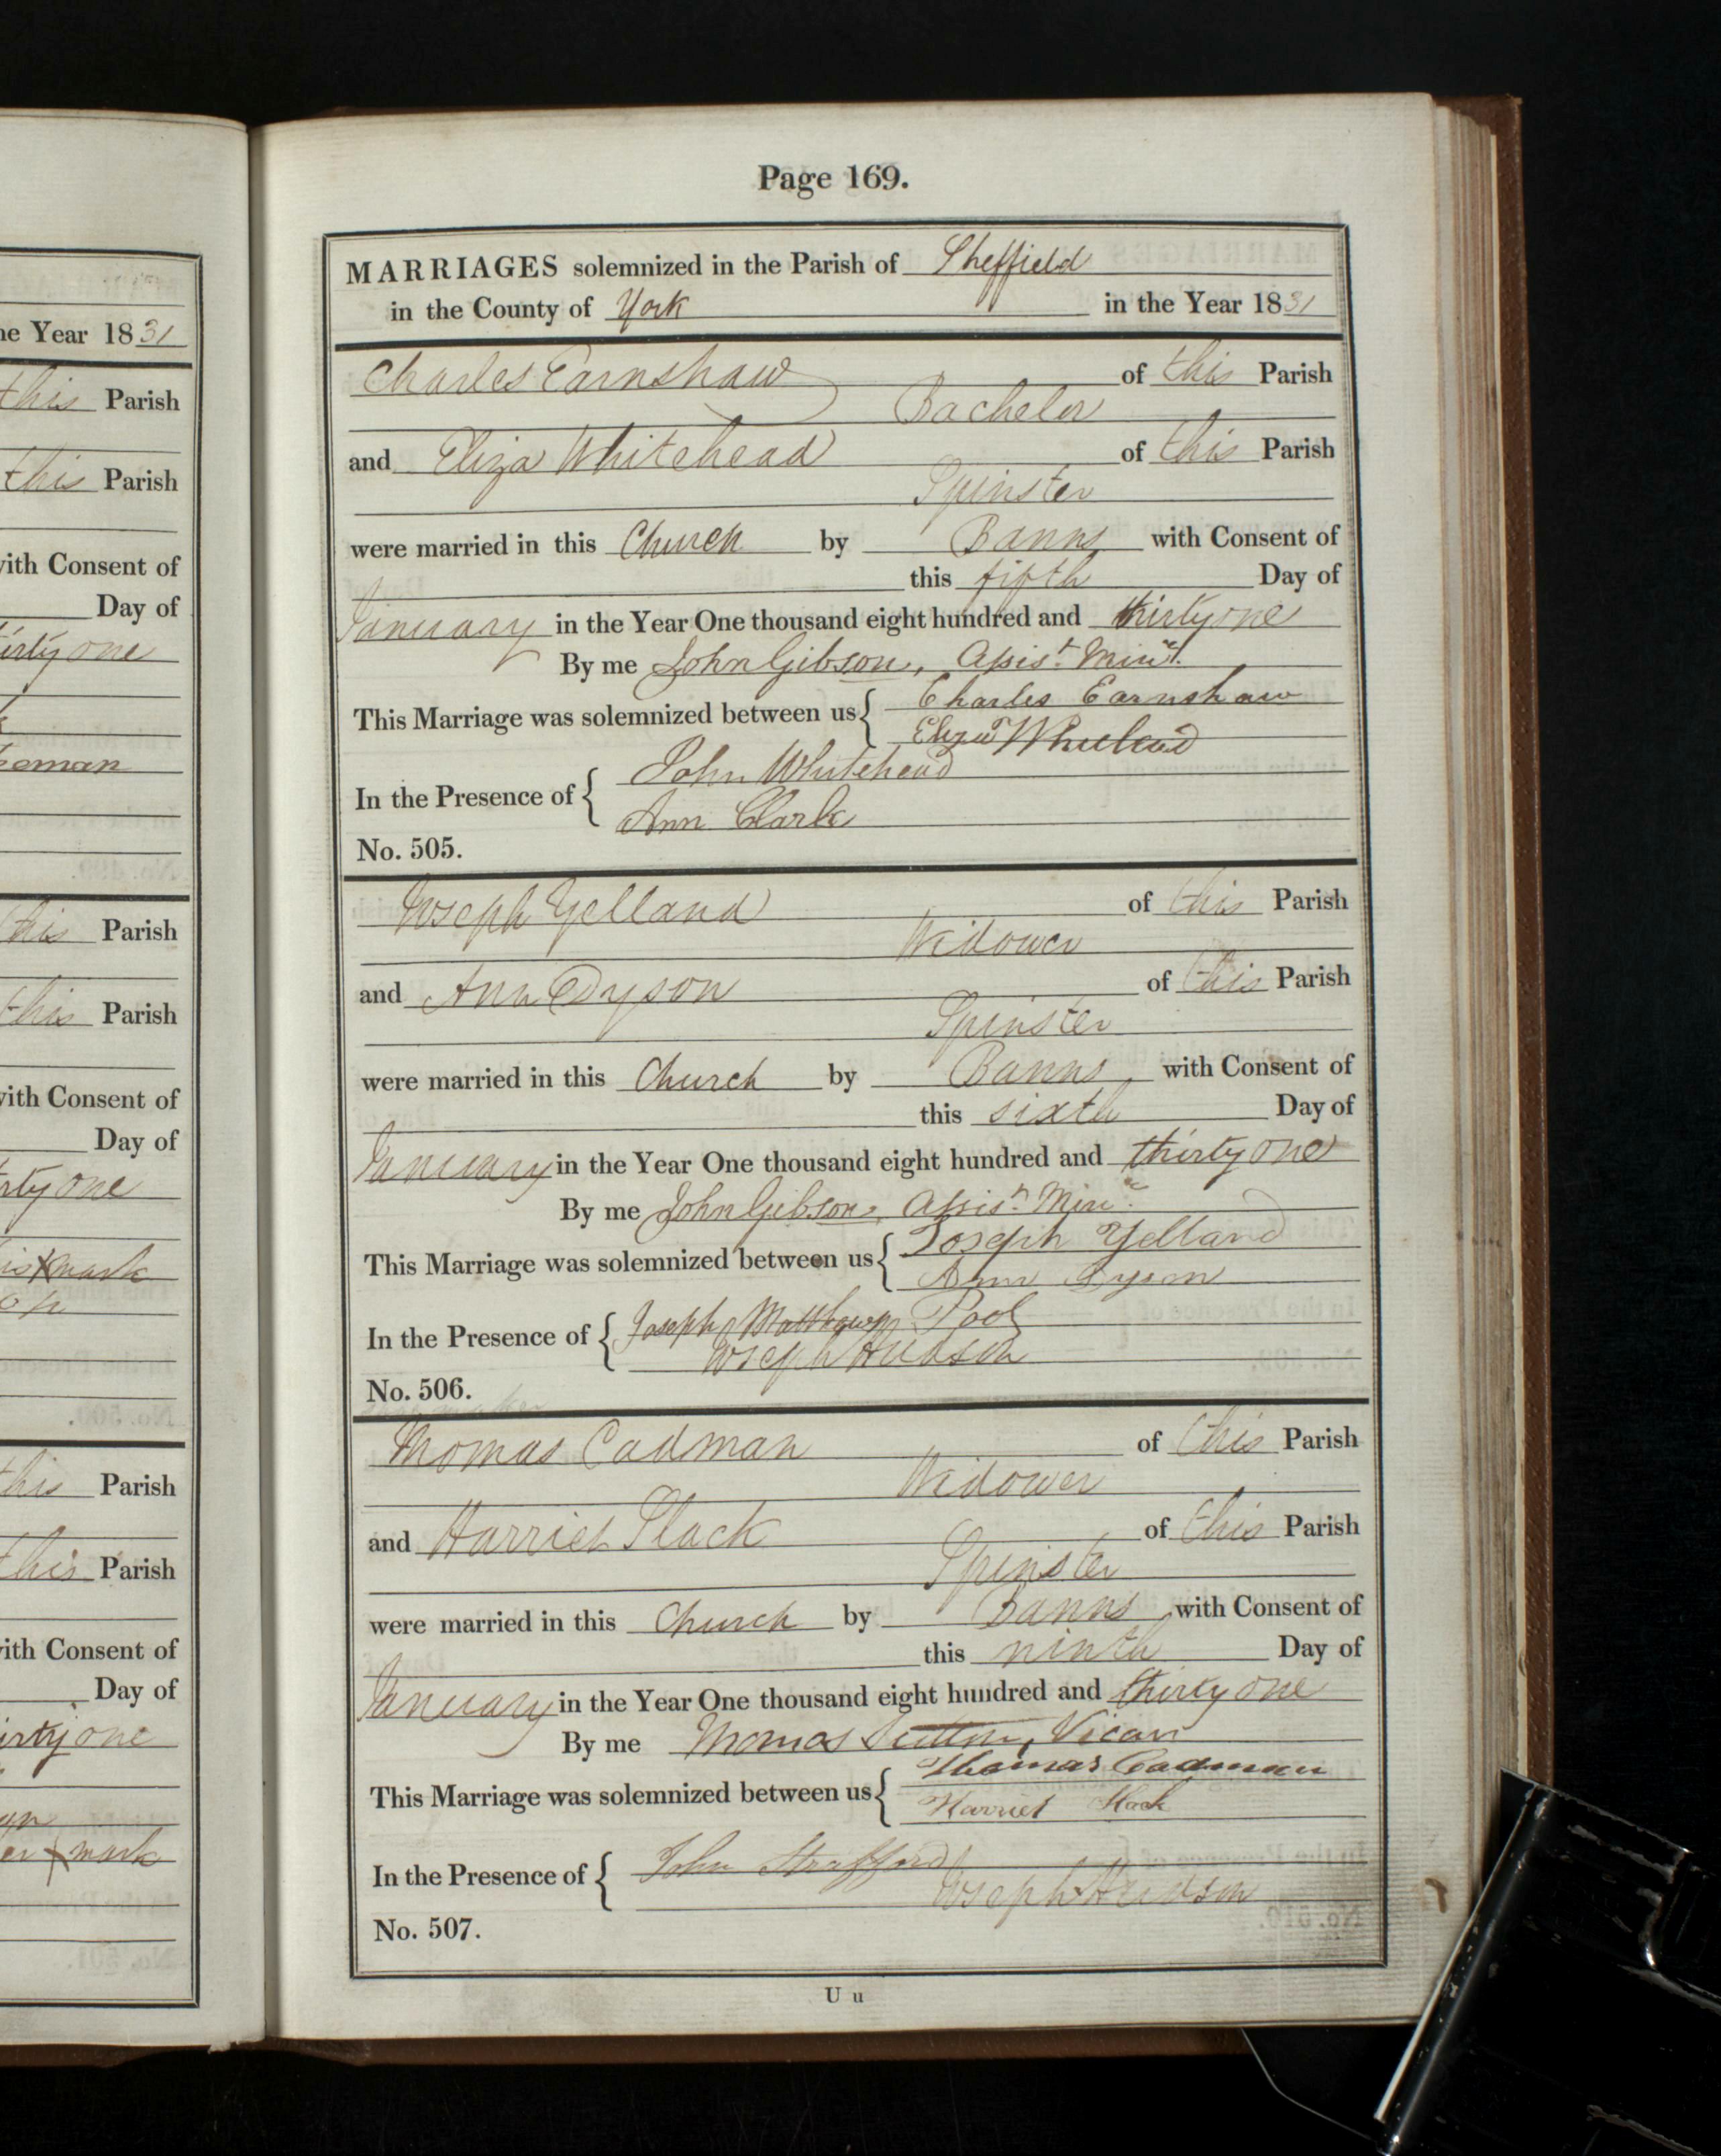 Page 169.
MARRIAGES solemnized in the Parish of Sheffield
in the County of York in the Year 1831
Charles Earnshaw of this Parish
Bachelor
and Eliza Whitehead of this Parish
Spinster
were married in this Church by Banns with Consent of
this fifth Day of
January in the Year One thousand eight hundred and thirty one
By me John Gibson, Assist. Minr.
This Marriage was solemnized between us { Charles Earnshaw
Eliza Whitehead
In the Presence of { John Whitehead
Ann Clark
No. 505.
Joseph Yelland of this Parish
Widower
and Ann Dyson of this Parish
Spinster
were married in this Church by Banns with Consent of
this sixth Day of
January in the Year One thousand eight hundred and thirty one
By me John Gibson, Assist. Minr.
This Marriage was solemnized between us { Joseph Yelland
Ann Dyson
In the Presence of { Joseph Matthewm Pool
Joseph Hudson
No. 506.
Thomas Cadman of this Parish
Widower
and Harriet Slack of this Parish
Spinster
were married in this Church by Banns with Consent of
this ninth Day of
January in the Year One thousand eight hundred and thirty one
By me Thomas Sutton, Vicar
This Marriage was solemnized between us { Thomas Cadman
Harriet Slack
In the Presence of { John Strafford
Joseph Hudson
No. 507.
U u
he Year 1831
this Parish
this Parish
with Consent of
Day of
thirty one
this Parish
this Parish
with Consent of
Day of
thirty one
his X mark
this Parish
this Parish
with Consent of
Day of
thirty one
her X mark